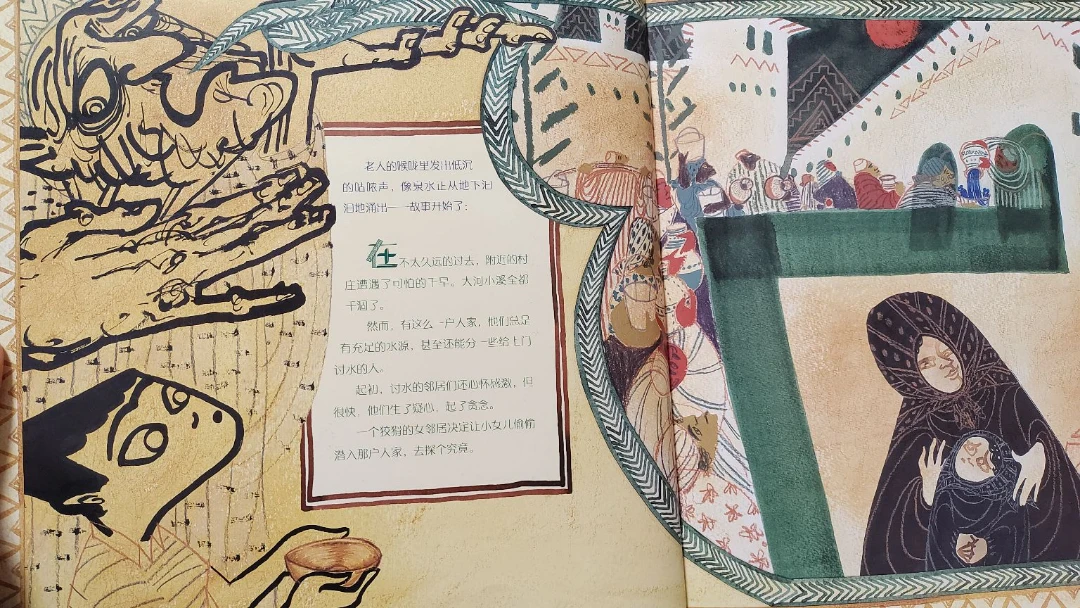 老人的喉咙里发出低沉
的咕哝声，像泉水正从地下汩
汩地涌出——故事开始了：
在不太久远的过去，附近的村
庄遭遇了可怕的干旱。大河小溪全都
干涸了。
然而，有这么一户人家，他们总是
有充足的水源，甚至还能分一些给上门
讨水的人。
起初，讨水的邻居们还心怀感激，但
很快，他们生了疑心，起了贪念。
一个狡猾的女邻居决定让小女儿偷偷
潜入那户人家，去探个究竟。